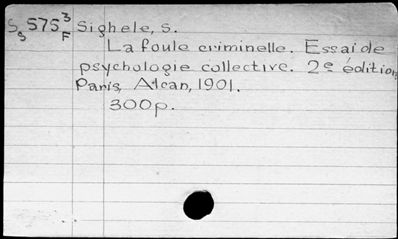 S₉575³F Sighele, S.
La foule criminelle. Essai de
psychologie collective. 2e édition,
Paris, Alcan, 1901.
300p.